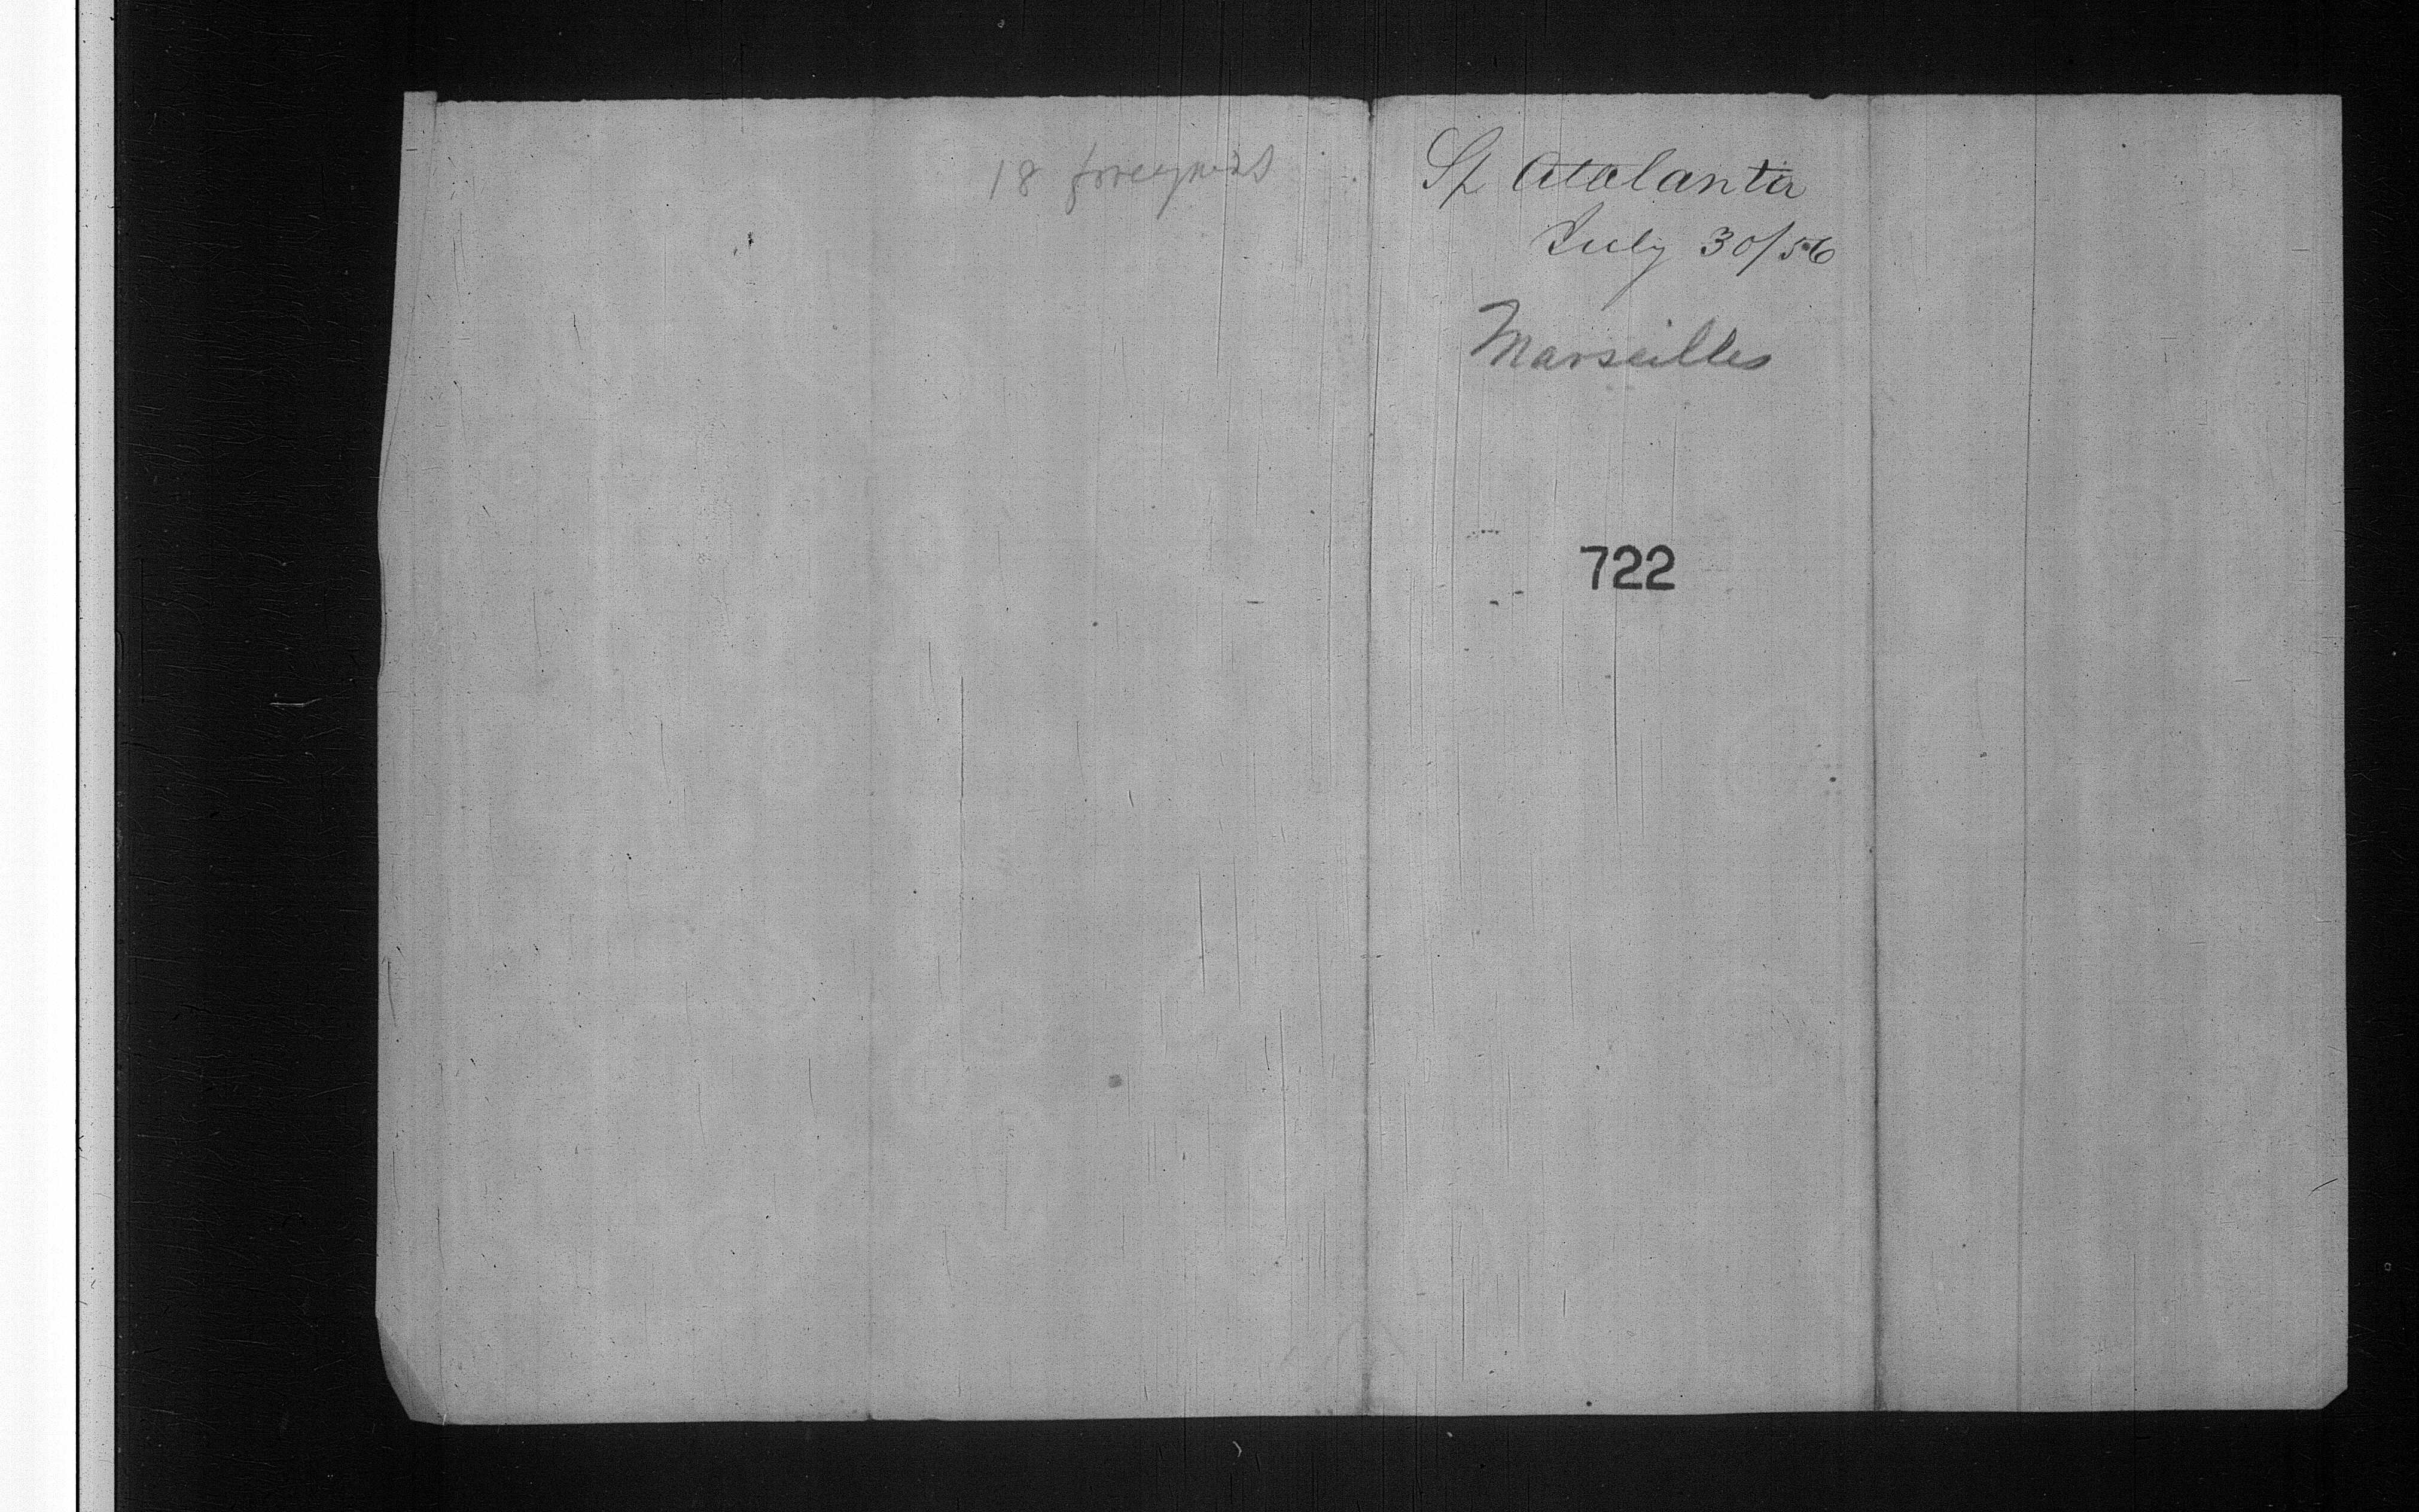 18 foreigners
Sp Atalanta
July 30/56
Marseilles
722